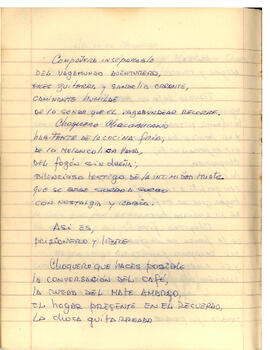 Compañero inseparable
del vagabundo aventurero,
eres guitarra y sandalia caliente,
caminante humilde
de la senda que el vagabundear recorre.
Choquero
habitante de la cocina fría,
de la melancolica pena,
del fogón sin dueña;
silencioso testigo de la intimidad triste
que se
con nostalgia y
Asi es,
prizionero y libre
Choquero que haces posible
la conversación del café,
la rueda del mate amargo,
el hogar presente en el recuerdo,
la choca guitarreado